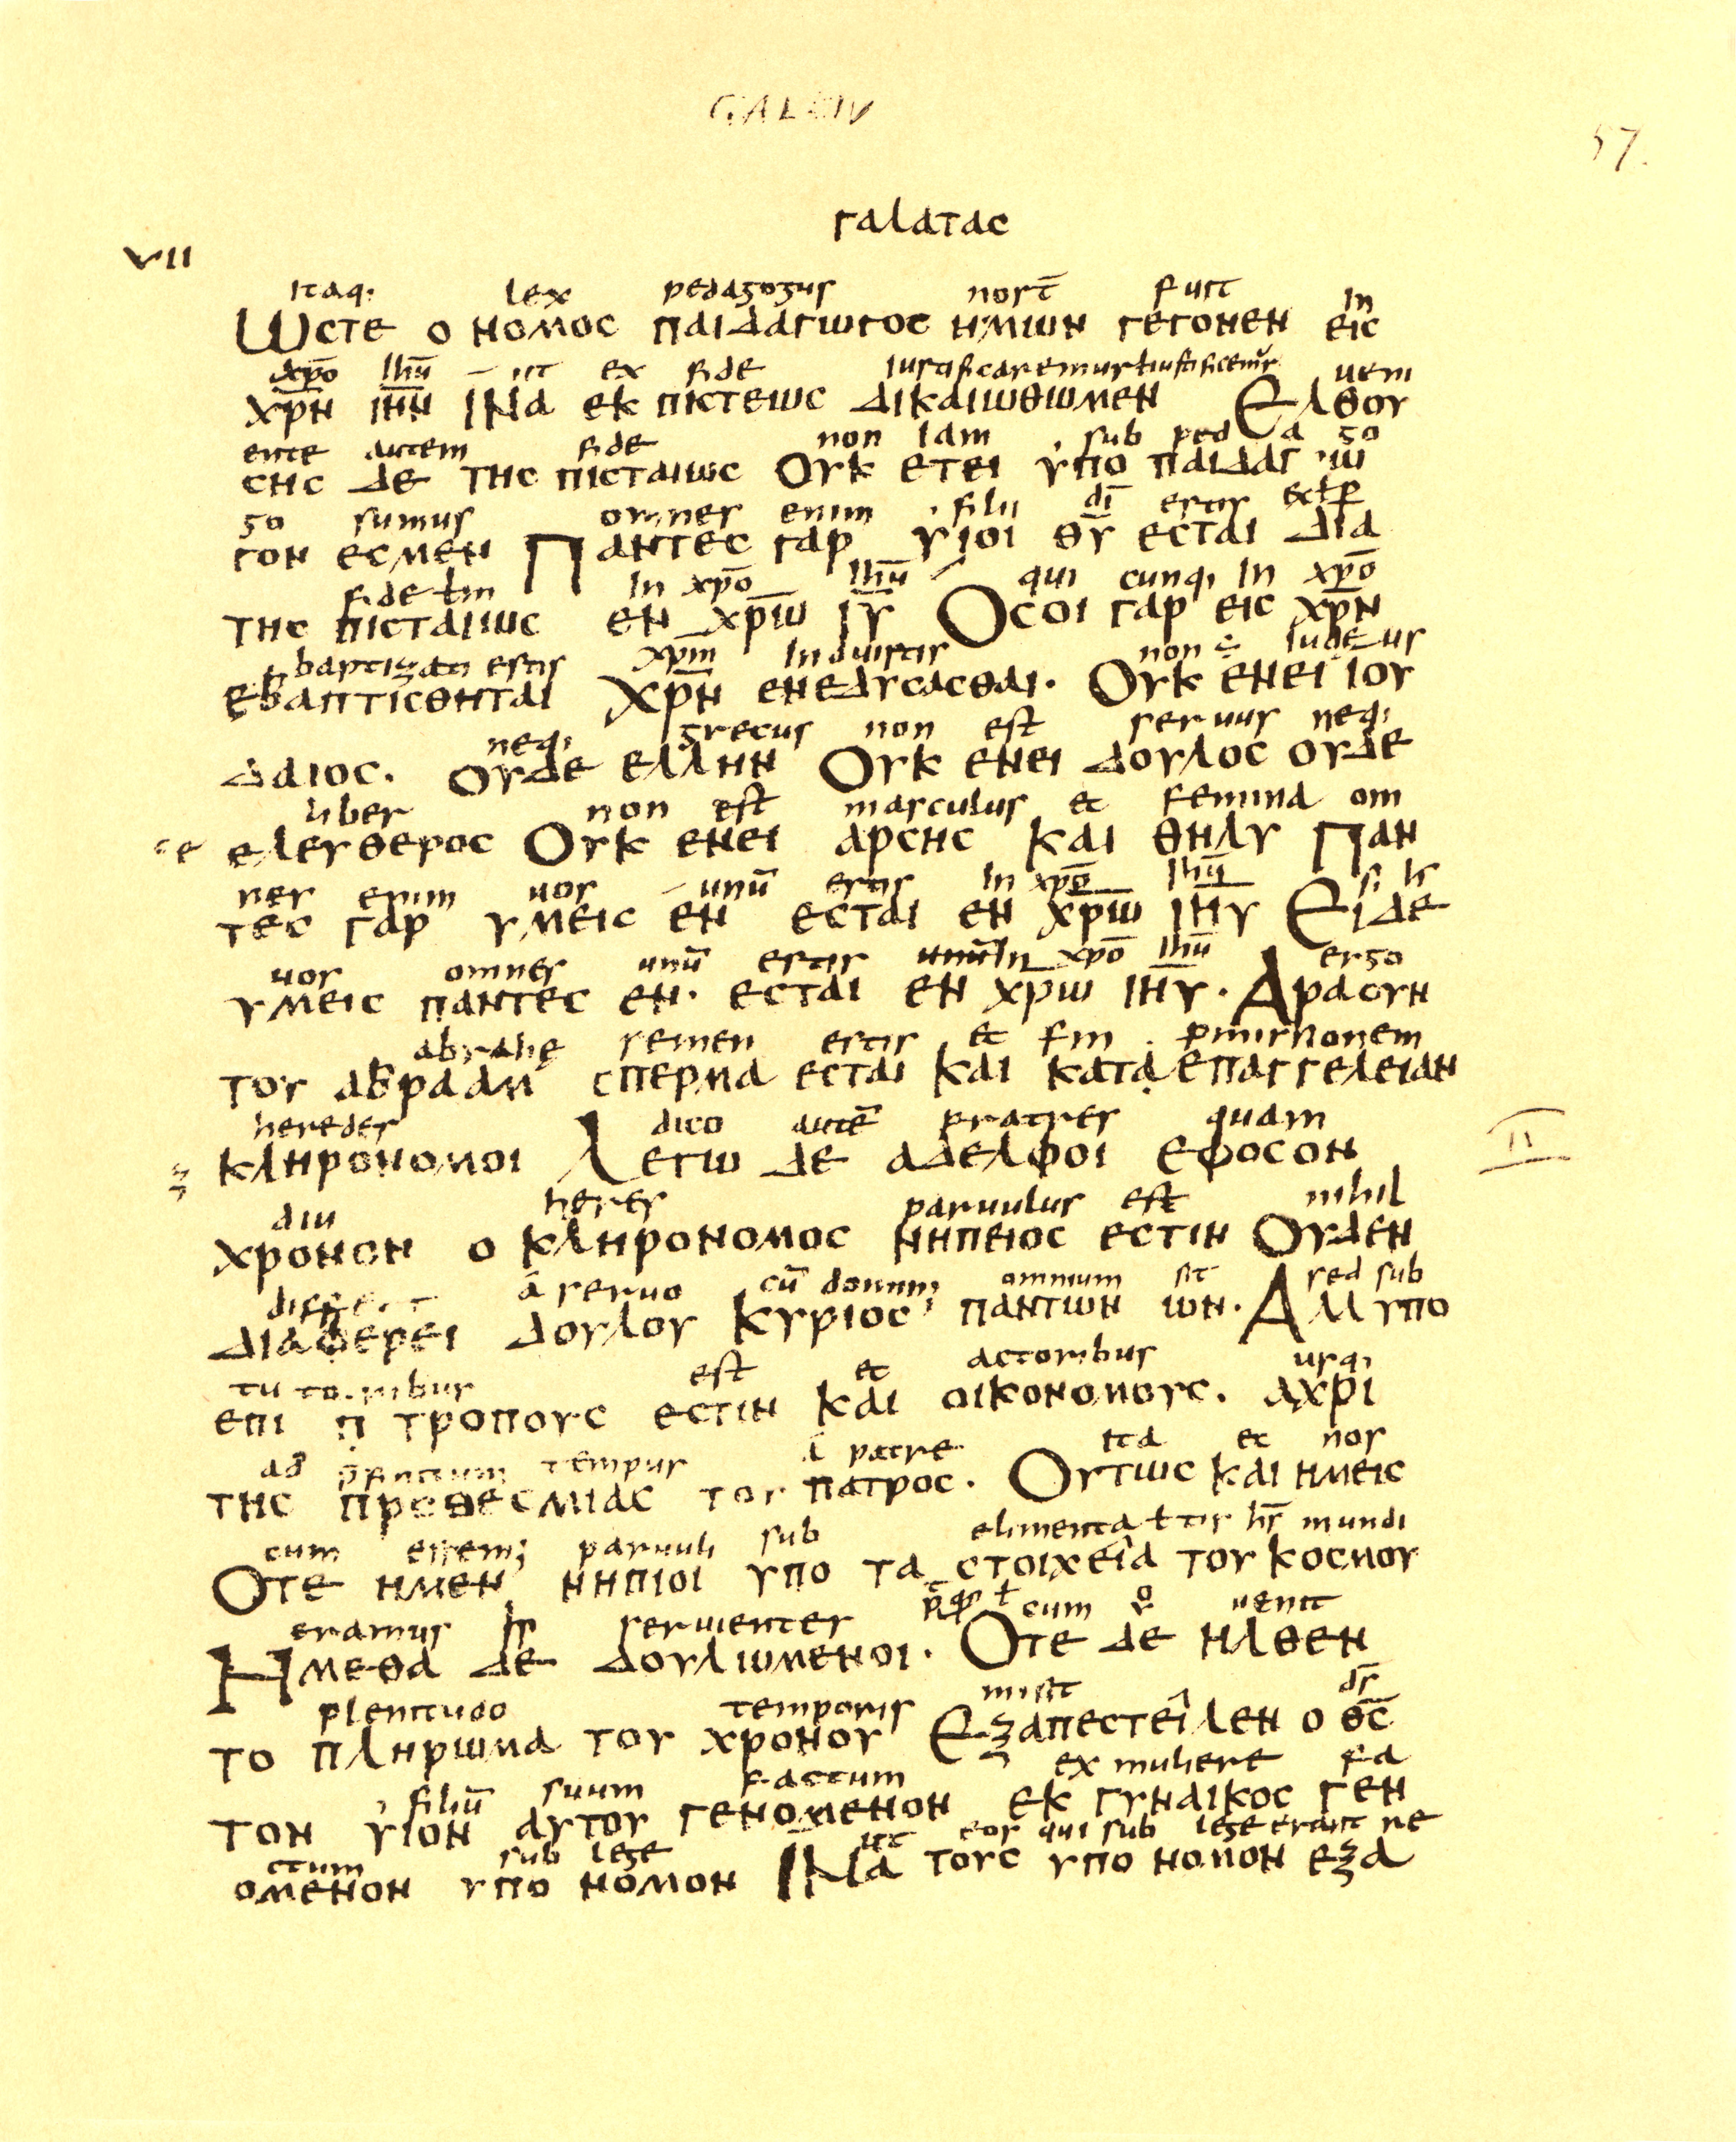 GAL
57.
γαλατας
VII
itaq; lex pedagogus nosт̄ fuit in
ωϲτε ο νομοϲ παιδαγωγοϲ ημων γεγονεν ειϲ
xp̄o ihū ut ex fide iustificaremur ł iustificemur ueni
χρ̅ν ιη̅ν ινα εκ πιϲτεωϲ δικαιωθωμεν Ελθου
ente autem fide non iam sub ped a go
ϲηϲ δε τηϲ πιϲταιωϲ Ουκ ετει υπο παιδαγω
go sumus omnes enim filii dī estis
γον εϲμεν Παντεϲ γαρ υιοι θ̅υ εϲται δια
fide in xp̄o ihū qui cunq; in xp̄o
τηϲ πιϲταιωϲ εν χρ̅ω ι̅υ Οϲοι γαρ ειϲ χρ̅ν
baptizati estis xp̄m induistis non ÷ iudeus
εβαπτιϲθηται Χρ̅ν ενεδυϲαϲθαι· Ουκ ενει ιου
neq; grecus non est seruus neq;
δαιοϲ. ουδε ελλην Ουκ ενει δουλοϲ ουδε
liber non est masculus et femina om
ελευθεροϲ Ουκ ενει αρϲηϲ και θηλυ Παν
nes enim uos unū estis in xp̄o ihū si
τεϲ γαρ υμειϲ εν εϲται εν χρ̅ω ιη̅υ Ει δε
uos omnes unū estis in xp̄o ihū ergo
υμειϲ παντεϲ εν· εϲται εν χρω ιη̅υ· Αρα ουν
abrahę semen estis et
του αβρααμ ϲπερμα εϲται και κατα επαγγελειαν
heredes dico autē fratres quam
κληρονομοι Λεγω δε αδελφοι εφοϲον
II
diu heres paruulus est nihil
χρονον ο κληρονομοϲ νηπειοϲ εϲτιν Ουδεν
differt a seruo cū omnium sit sed sub
διαφερει δουλου κυριοϲ παντων ων· Αλλ υπο
tutoribus est et actoribus usq;
επι π τροπουϲ εϲτιν και οικονομουϲ. αχρι
ad tempus a patre ita et nos
τηϲ προθεϲμιαϲ του πατροϲ. Ουτωϲ και ημειϲ
cum essem; paruuli sub elimenta mundi
Οτε ημεν νηπιοι υπο τα ϲτοιχεια του κοϲμου
eramus seruientes cum uenit
Ημεθα δε δουλωμενοι. Οτε δε ηλθεν
plenitudo temporis misit d̄s
το πληρωμα του χρονου Εξαπεϲτειλεν ο θ̅ϲ
filiū suum factum ex muliere fa
τον υιον αυτου γενομενον εκ γυναικοϲ γεν
ctum sub lege ut eos qui sub lege erant re
ομενον υπο νομον ινα τουϲ υπο νομον εξα